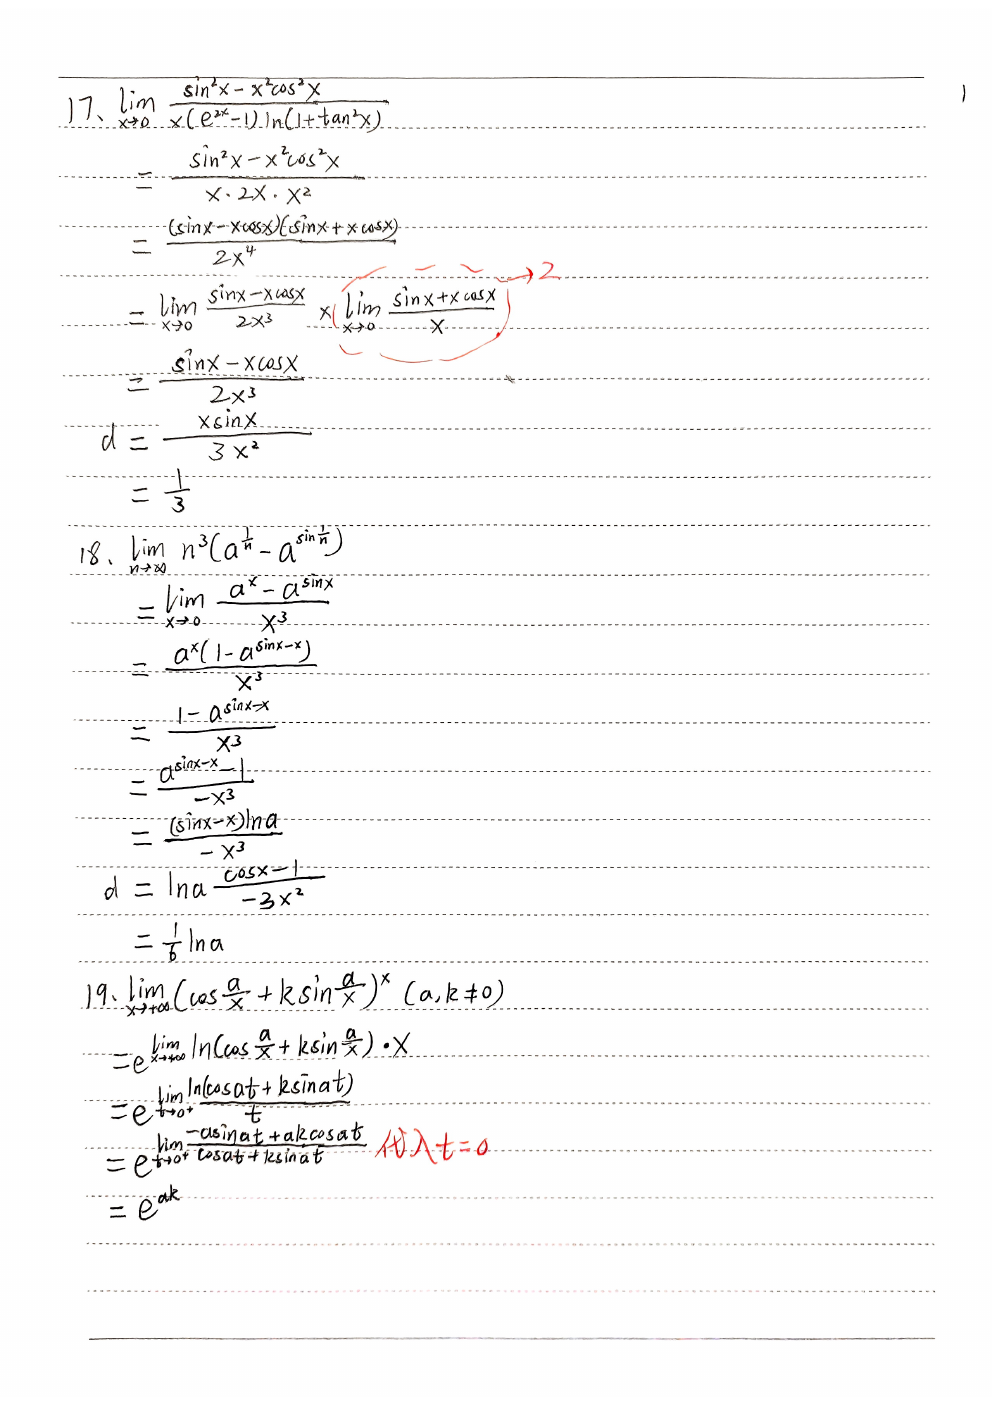 1
17、lim x→0 (sin²x − x²cos²x)/(x(e^{2x}−1)ln(1+tan²x))
= (sin²x − x²cos²x)/(x·2x·x²)
= (sinx − xcosx)(sinx + xcosx)/(2x⁴)
= lim x→0 (sinx − xcosx)/(2x³) × lim x→0 (sinx + xcosx)/x → 2
= (sinx − xcosx)/(2x³)
d = (xsinx)/(3x²)
= 1/3
18、lim n→∞ n³(a^{1/n} − a^{sin 1/n})
= lim x→0 (a^x − a^{sinx})/x³
= a^x(1 − a^{sinx−x})/x³
= (1 − a^{sinx−x})/x³
= (a^{sinx−x} − 1)/(−x³)
= (sinx−x)lna/(−x³)
d = lna (cosx−1)/(−3x²)
= 1/6 lna
19、lim x→+∞ (cos a/x + ksin a/x)^x (a,k≠0)
= e^{lim x→+∞ ln(cos a/x + ksin a/x)·x}
= e^{lim t→0⁺ ln(cosat + ksinat)/t}
= e^{lim t→0⁺ (−asinat + akcosat)/(cosat + ksinat)} 代入t=0
= e^{ak}